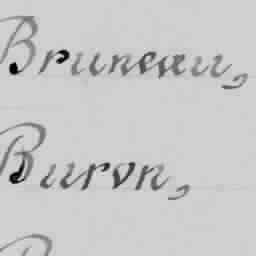 Bruneau,
Buron,